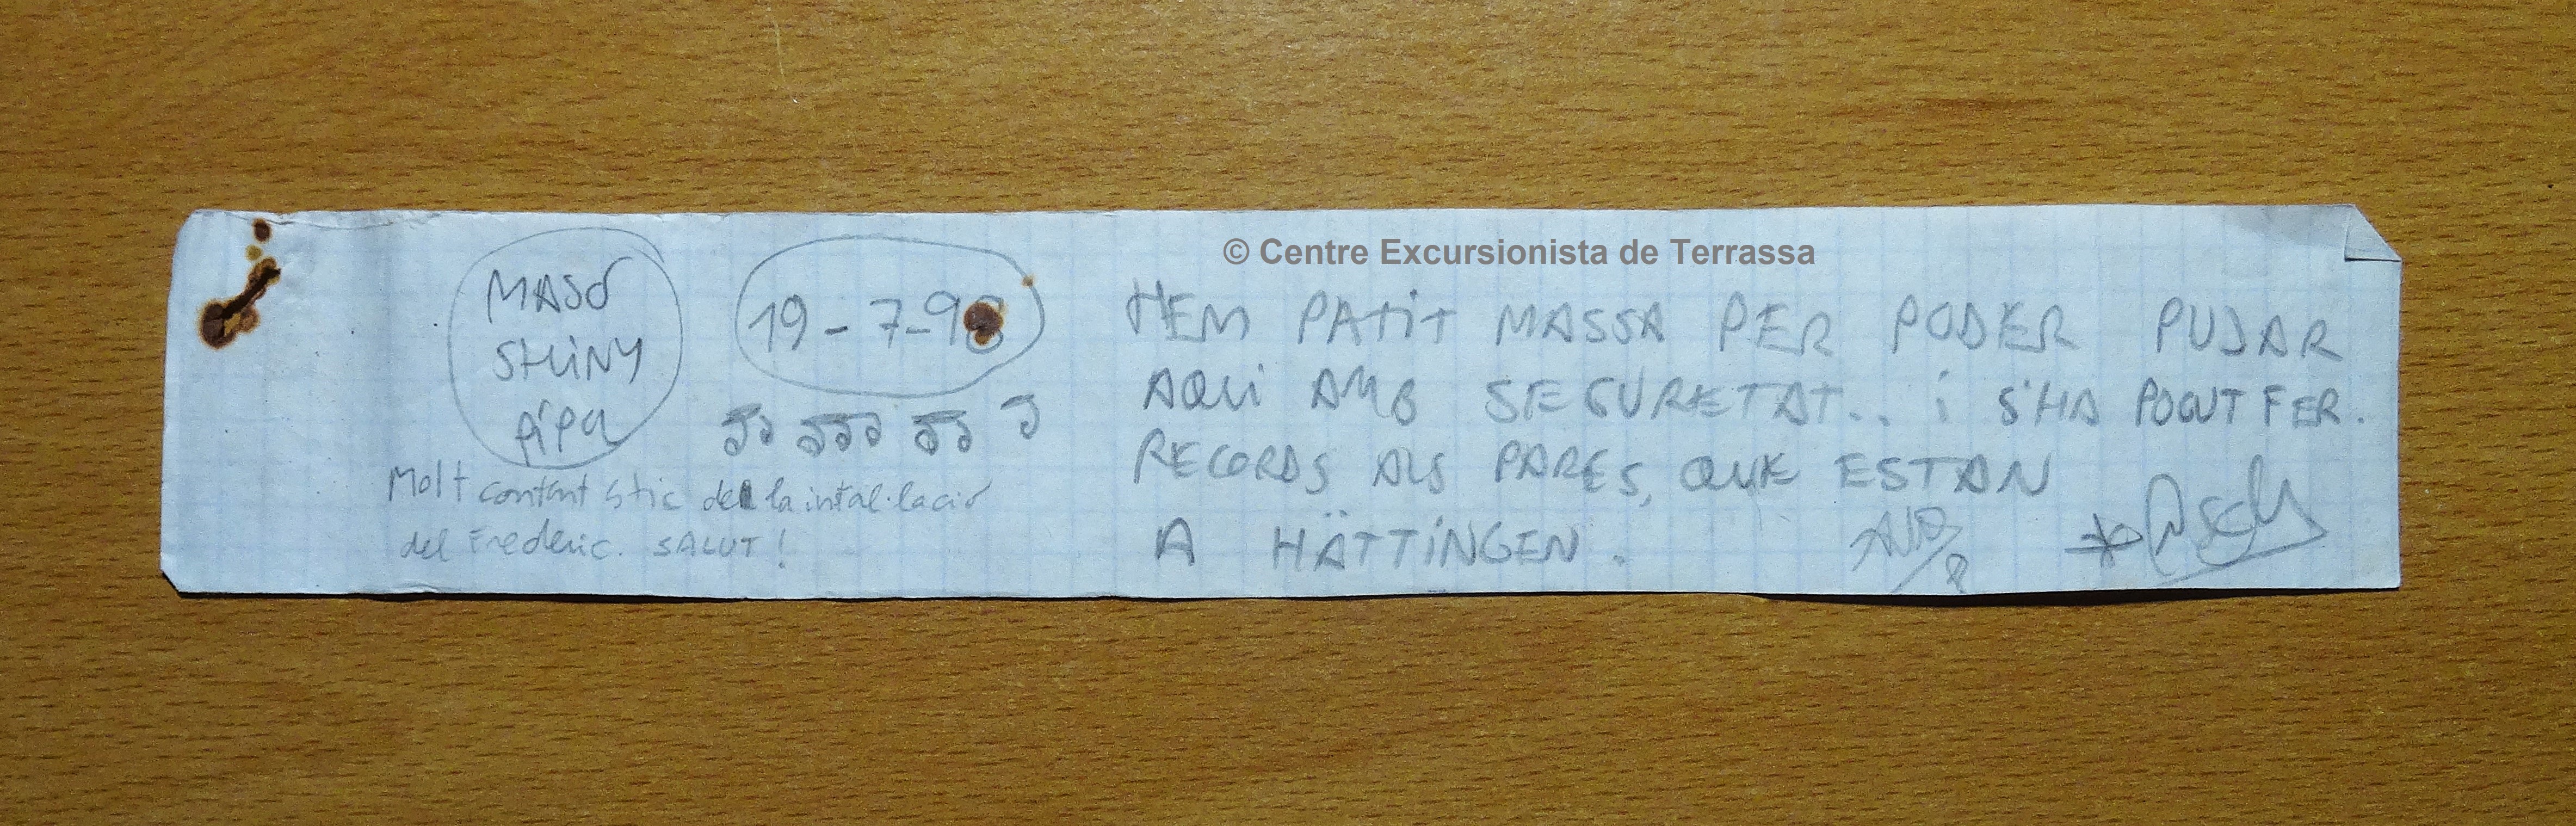 © Centre Excursionista de Terrassa
MASÓ
SHINY
pipa
19-7-98
Molt content stic de la intal·lació
del Frederic. SALUT!
HEM PATIT MASSA PER PODER PUJAR
AQUI AMB SEGURETAT.. i S'HA POGUT FER.
RECORDS ALS PARES, QUE ESTAN
A HÄTTINGEN.